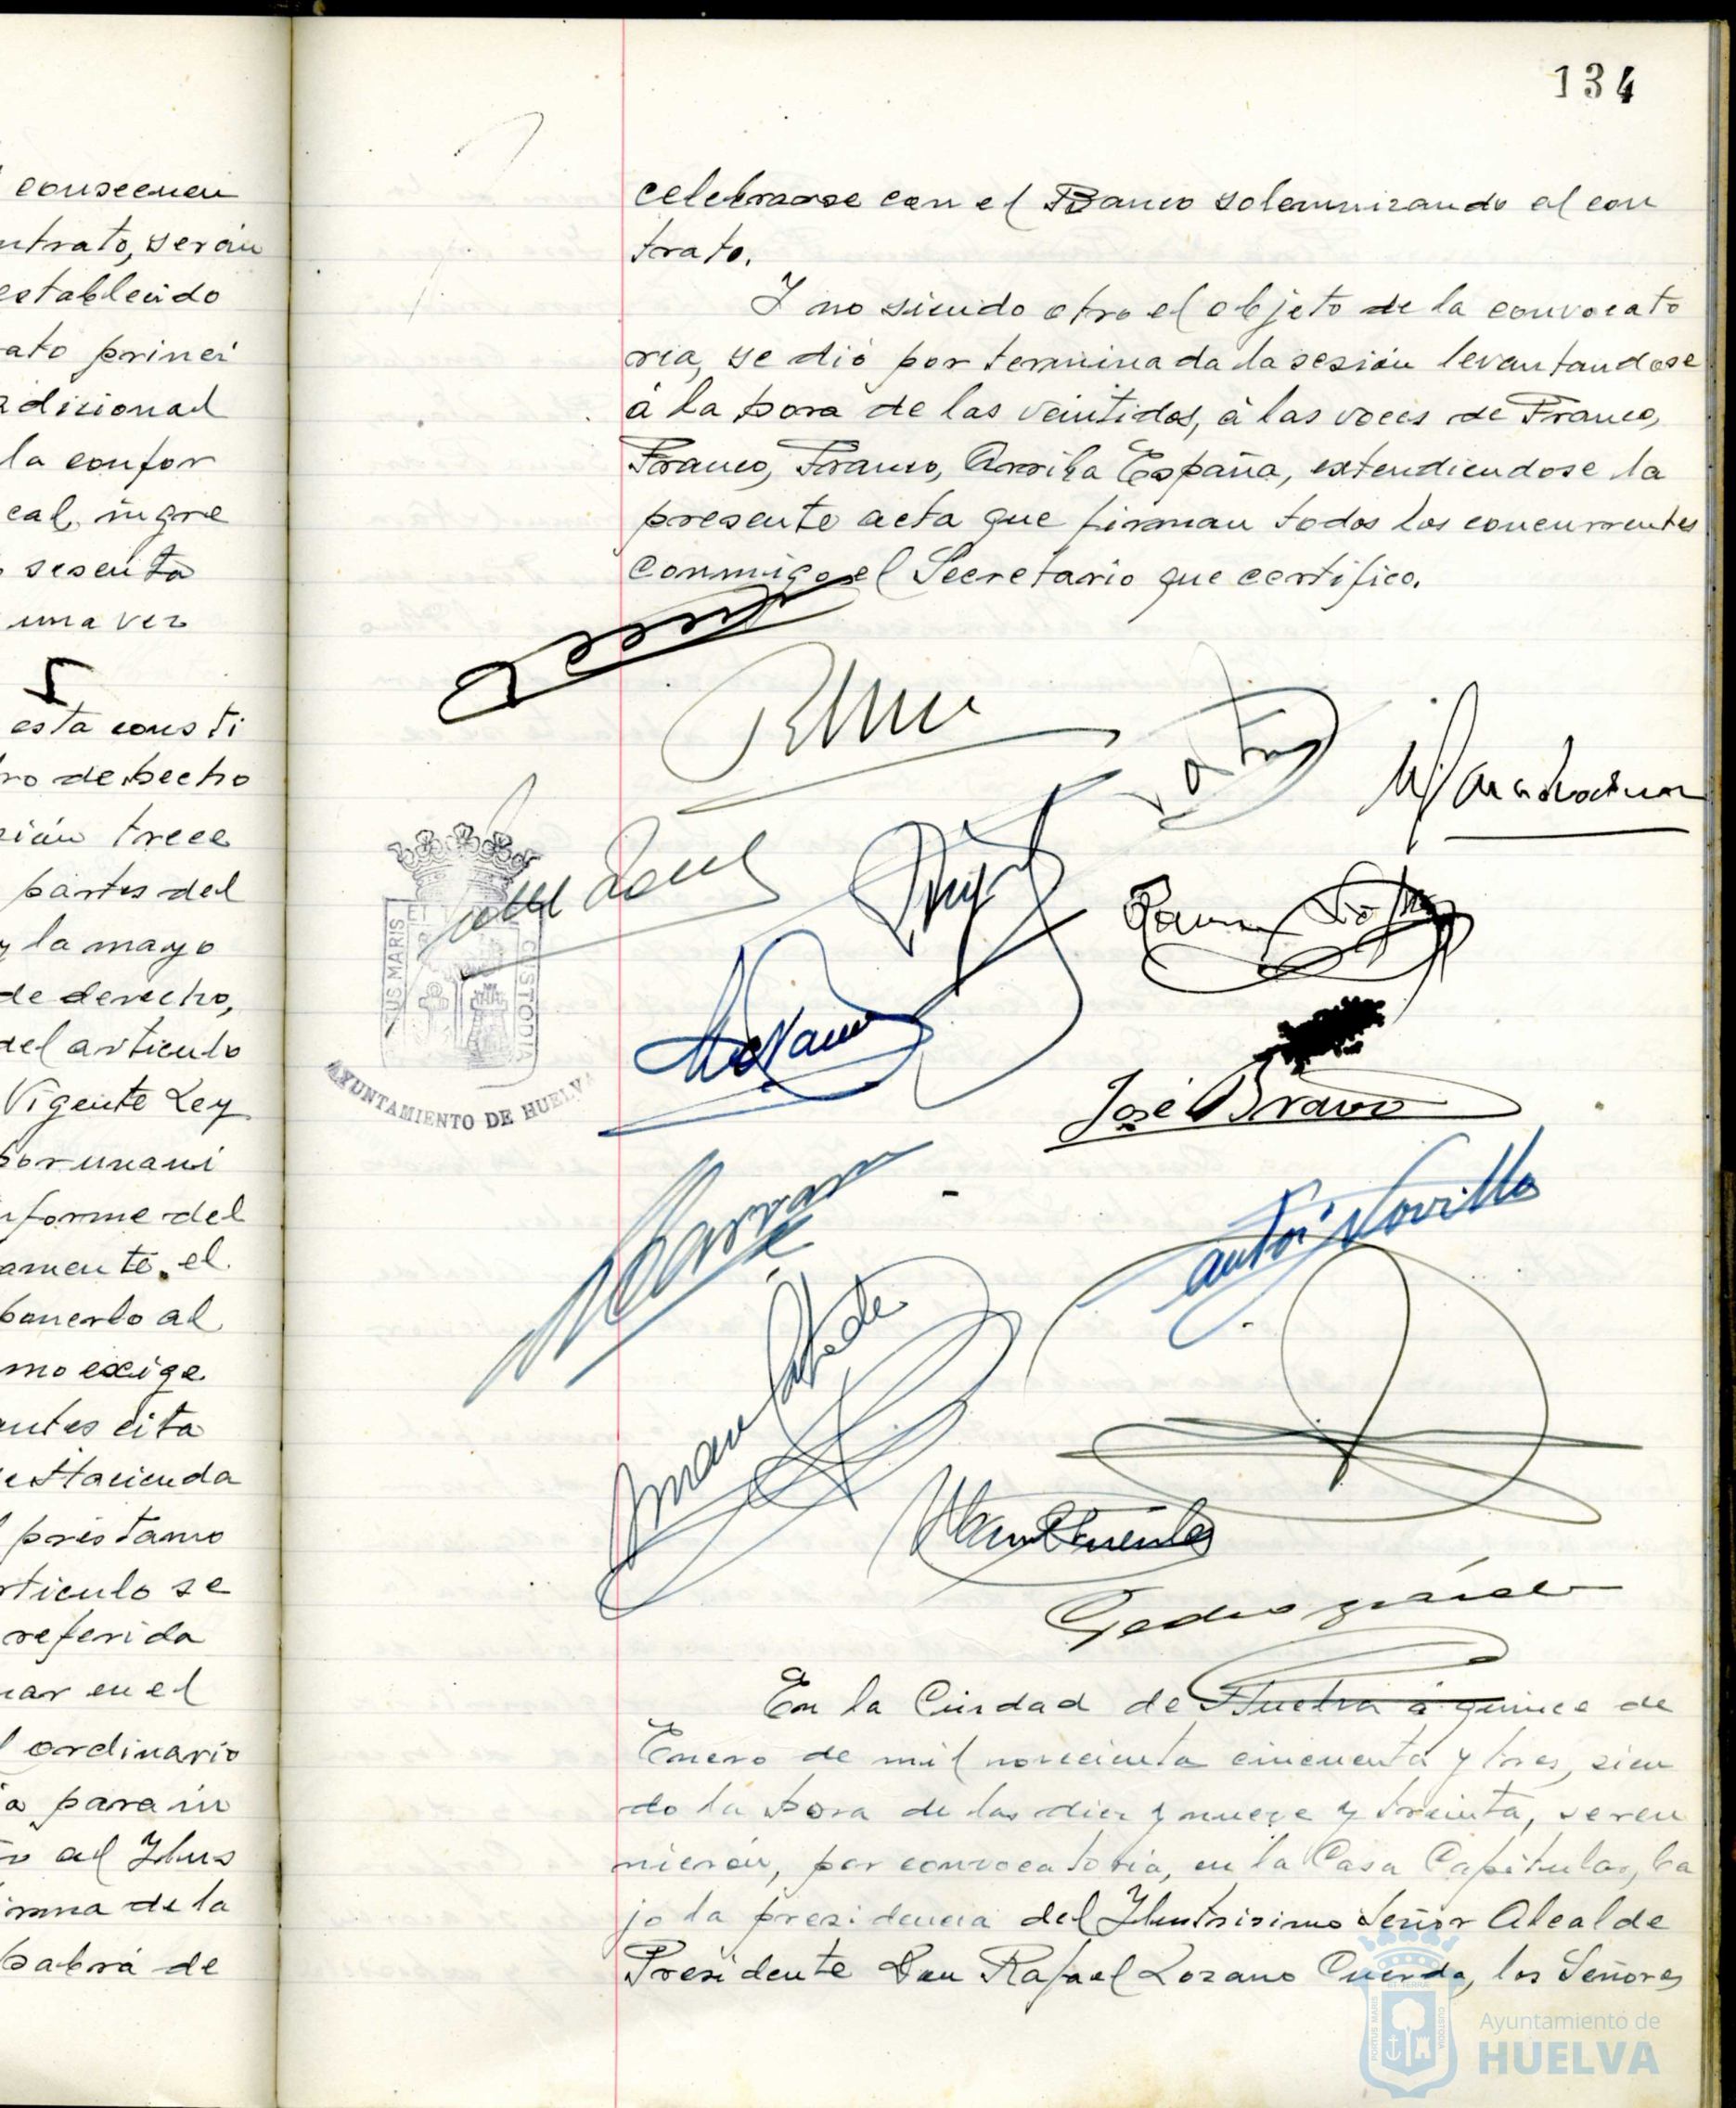 consecuen
ntrato, serán
establecido
ato princi
adicional
la confor
cal, ingre
sesenta
una vez
esta consti
ro de hecho
sión trece
partes del
y la mayo
de derecho,
del articulo
Vigente Ley
por unani
nforme del
amente, el
ponerlo al
mo exige
antes cita
e Hacienda
préstamo
rticulo se
referida
nar en el
l ordinario
a para in
al Ilus
irma de la
habrá de
134
celebrarse con el Banco solemnizando el con
trato.
Y no siendo otro el objeto de la convocato
ria, se dió por terminada la sesión levantandose
á la hora de las veintidos, á las voces de Franco,
Franco, Franco, Arriba España, extendiendose la
presente acta que firman todos los concurrentes
conmigo el Secretario que certifico.
PORTUS MARIS ET TERRAE CUSTODIA
AYUNTAMIENTO DE HUELVA
José Bravo
Antº Novillo
En la Ciudad de Huelva á quince de
Enero de mil novecienta cincuenta y tres, sien
do la hora de las diez y nueve y treinta, se reu
nierón, por convocatoria, en la Casa Capitular, ba
jo la presidencia del Ilustrisimo Señor Alcalde
Presidente Don Rafael Lozano Cuerda, los Señores
Ayuntamiento de
HUELVA